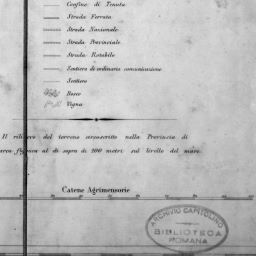 Confine di Tenuta
Strada Ferrata
Strada Nazionale
Strada Provinciale
Strada Rotabile
Sentiero di ordinaria comunicazione
Sentiero
Bosco
Vigna
Il rilievo del terreno circoscritto nella Provincia di
figura al di sopra di 200 metri sul livello del mare.
Catene Agrimensorie
ARCHIVIO CAPITOLINO
BIBLIOTECA
ROMANA